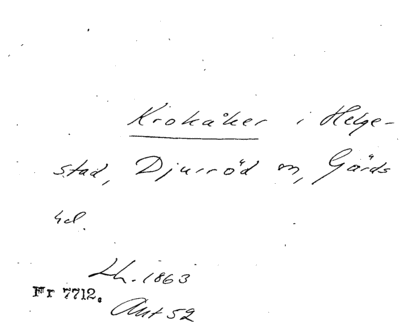 Krokåker i Helge-
stad, Djurröd sn, Gärds
hd.
Lh. 1863
Fr 7712.
Ant 52